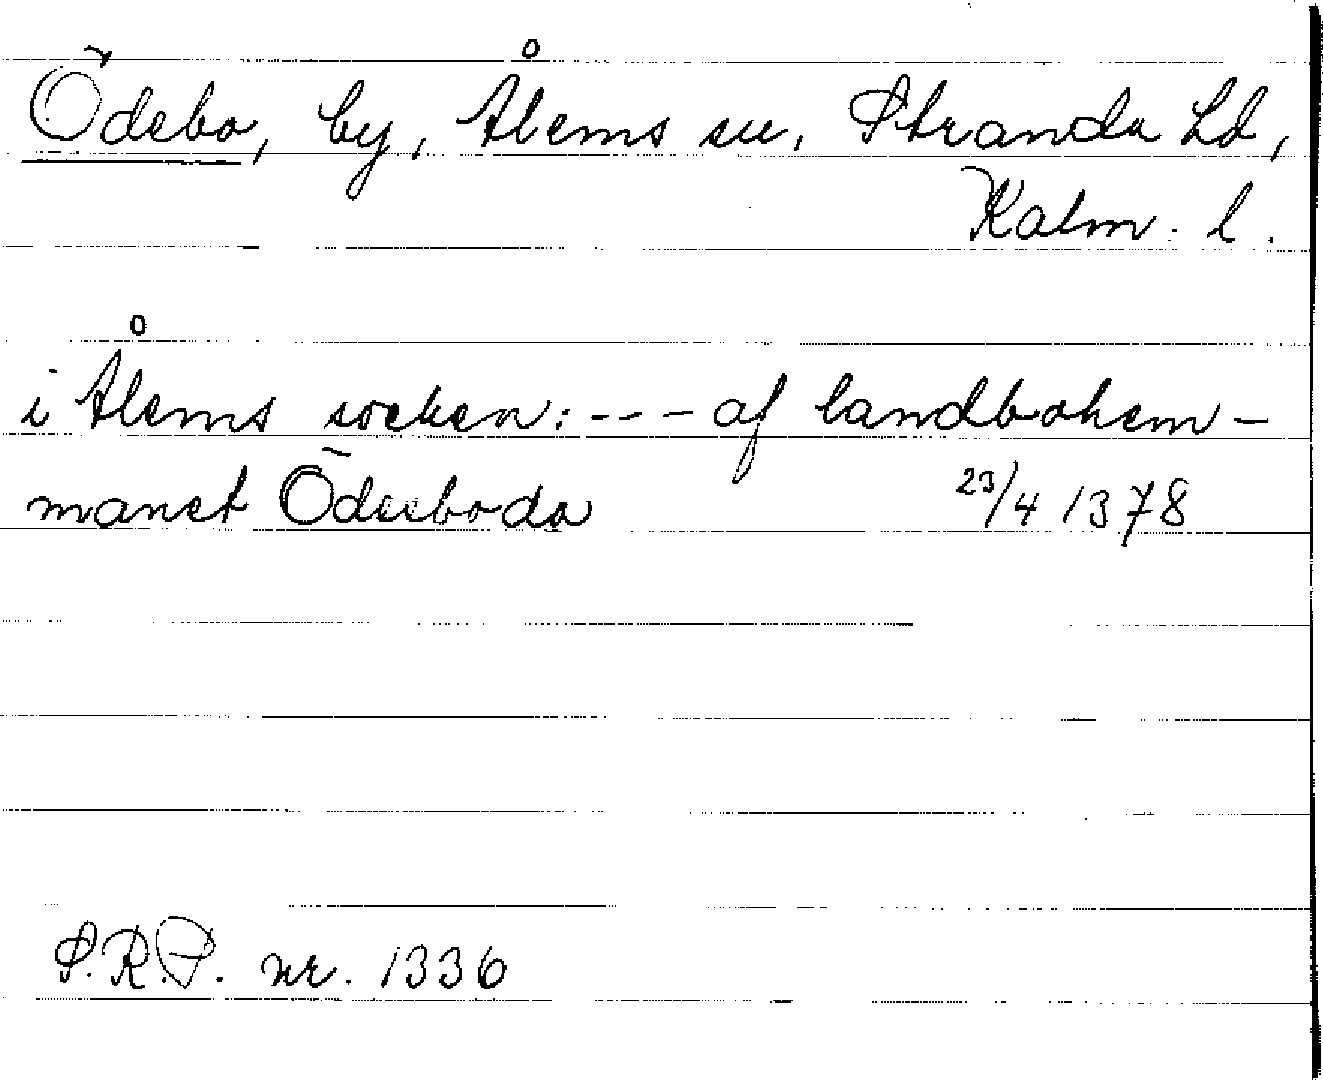 Ödebo, by, Ålems sn, Stranda hd,
Kalm. l.
i Ålems socken: --- af landbohem-
manet Ödesboda 23/4 1378
S.R.P. nr. 1336